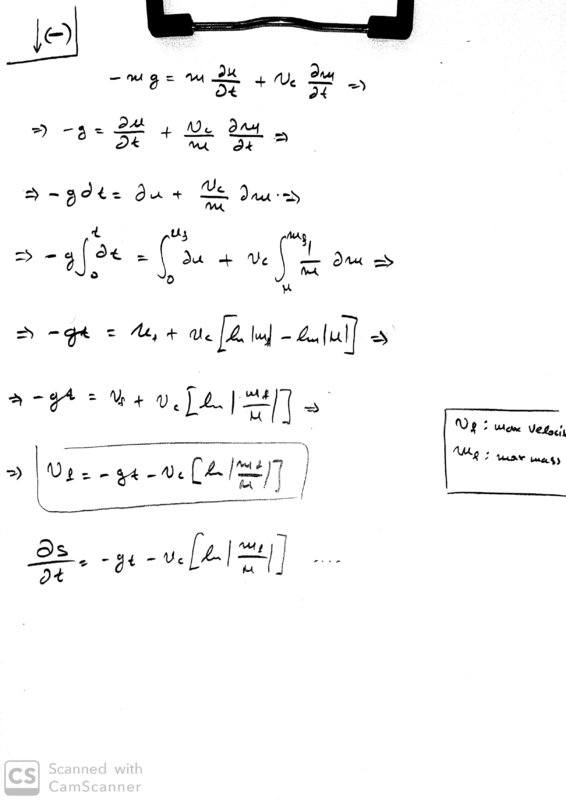 ↓(-)
-mg = m ∂u/∂t + Vc ∂m/∂t ⇒
⇒ -g = ∂u/∂t + Vc/m ∂m/∂t ⇒
⇒ -g∂t = ∂u + Vc/m ∂m ⇒
⇒ -g∫₀ᵗ ∂t = ∫₀^{uf} ∂u + Vc ∫_M^{mf} 1/m ∂m ⇒
⇒ -gt = uf + Vc [ln|mf| - ln|M|] ⇒
⇒ -gt = Vf + Vc [ln|mf/M|] ⇒
Vf : max velocit
⇒ Vf = -gt - Vc [ln|mf/M|]
mf : max mass
∂s/∂t = -gt - Vc [ln|mf/M|] ....
CS Scanned with
CamScanner